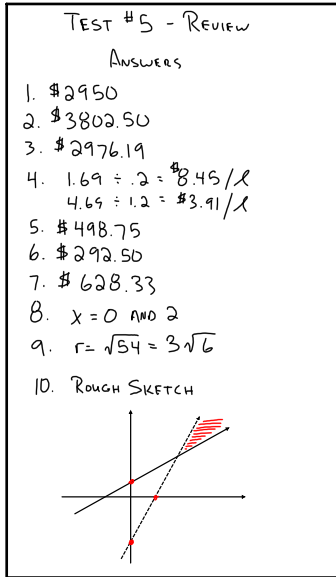 TEST #5 - REVIEW
ANSWERS
1. $2950
2. $3802.50
3. $2976.19
4. 1.69 ÷ .2 = $8.45/l
4.69 ÷ 1.2 = $3.91/l
5. $498.75
6. $292.50
7. $628.33
8. x = 0 AND 2
9. r = √54 = 3√6
10. ROUGH SKETCH